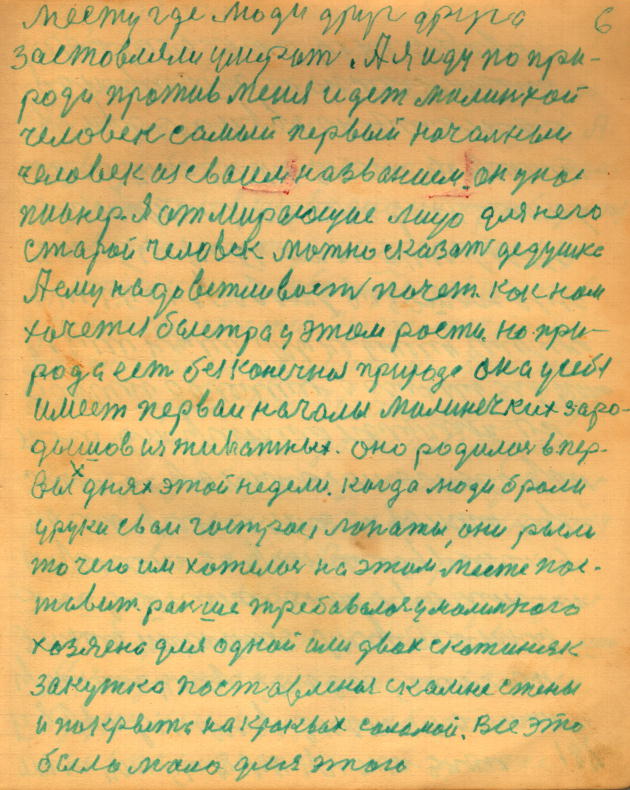 месту где люди друг друга 6
заставляли умират. А я иду по при-
роди против меня идет малинкой
человек самый первый началныи
человек из сваим названиим он у нас
пионер. Я отмирающие лицо для него
старой человек можно сказат дедушка
А ему надо ветливост почет. как нам
хочется быстра у этом рости. но при-
рода ест безконечная природа она у себя
имеет перваи началы малинечких заро-
дышов из животных. оно родилося в пер-
вых днях этой недели. когда люди брали
у руки сваи гострои лопаты, они рыли
то чего им хотелося на этом месте пос-
тавит. раньше требавалося у малинкого
хазяена для одной или двох скотиняк
закутка поставленая с камне стены
и покрыть на кроквах саломой. Все это
было мало для этого